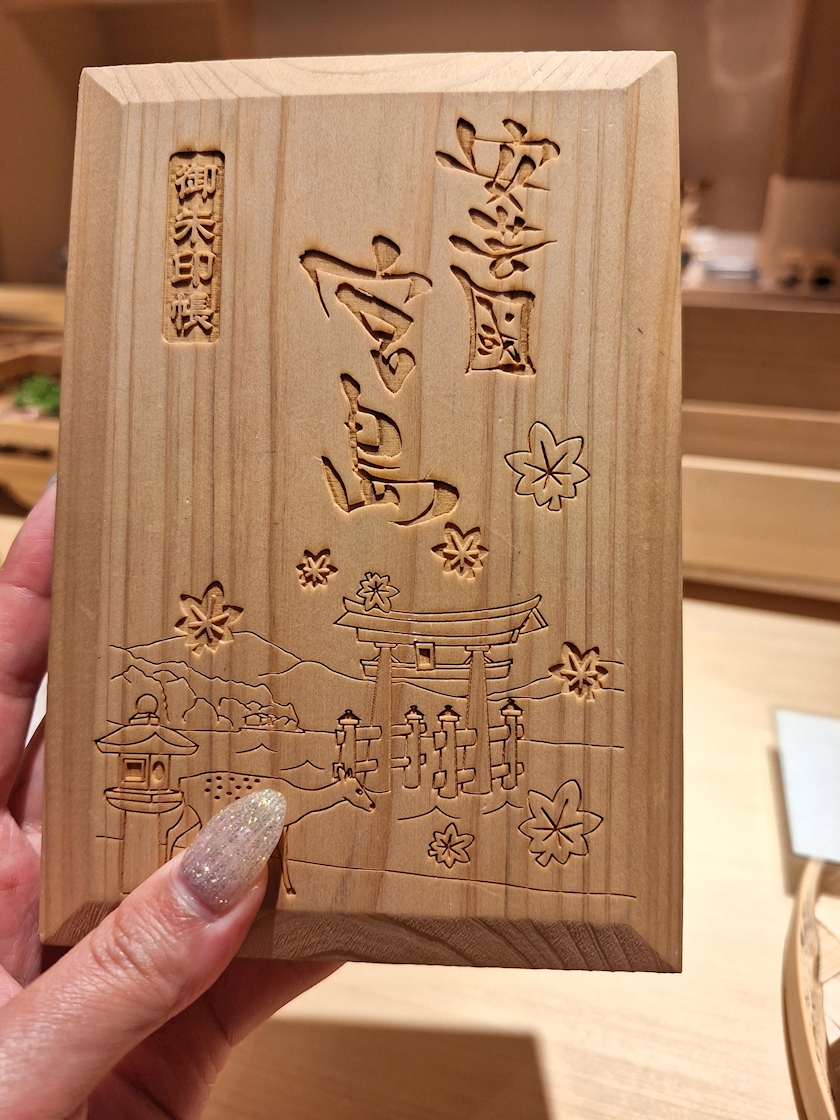 安芸國
宮島
御朱印帳